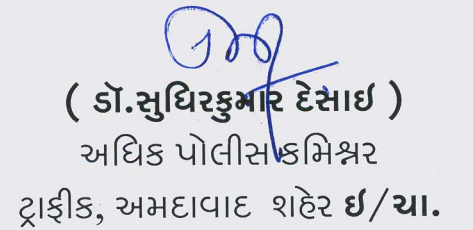 ( ડૉ.સુધિરકુમાર દેસાઇ )
અધિક પોલીસ કમિશ્નર
ટ્રાફીક, અમદાવાદ શહેર ઇ/ચા.